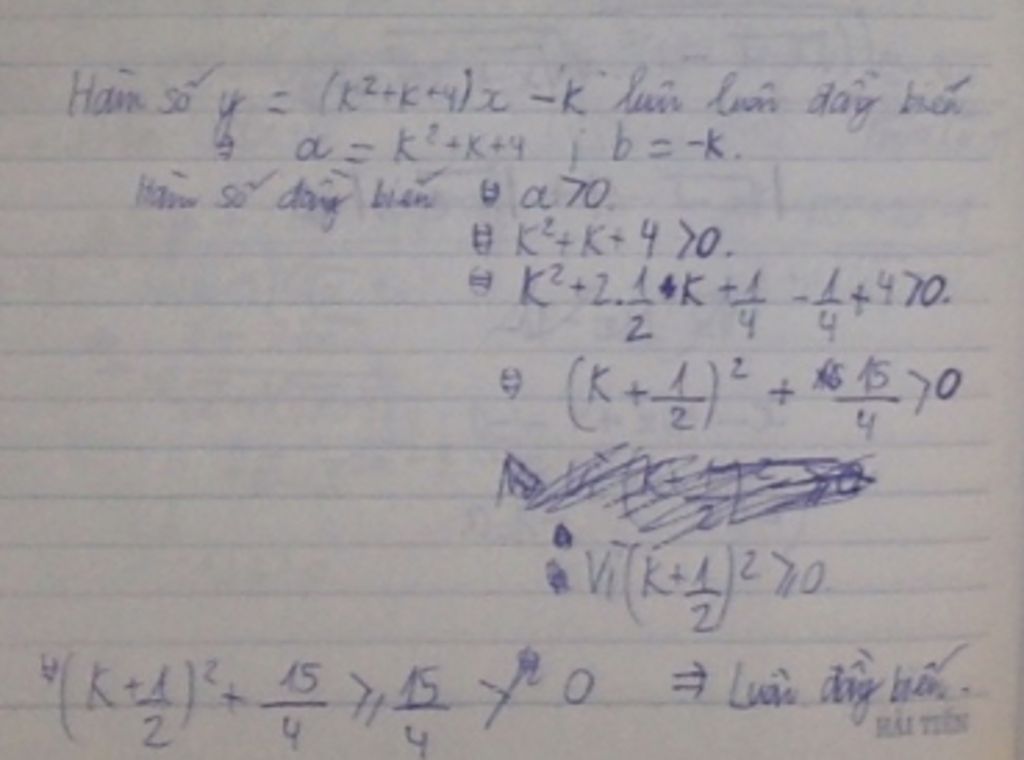 Hàm số y = (k²+k+4)x - k luôn luôn đồng biến
⇔ a = k²+k+4 ; b = -k.
Hàm số đồng biến ⇔ a>0.
⇔ k²+k+4 >0.
⇔ k²+2.1/2.k+1/4 - 1/4 + 4>0.
⇔ (k+1/2)² + 15/4 >0
Vì (k+1/2)² ⩾ 0.
⇔ (k+1/2)² + 15/4 ⩾ 15/4 > 0 ⇒ Luôn đồng biến.
HẢI TIẾN